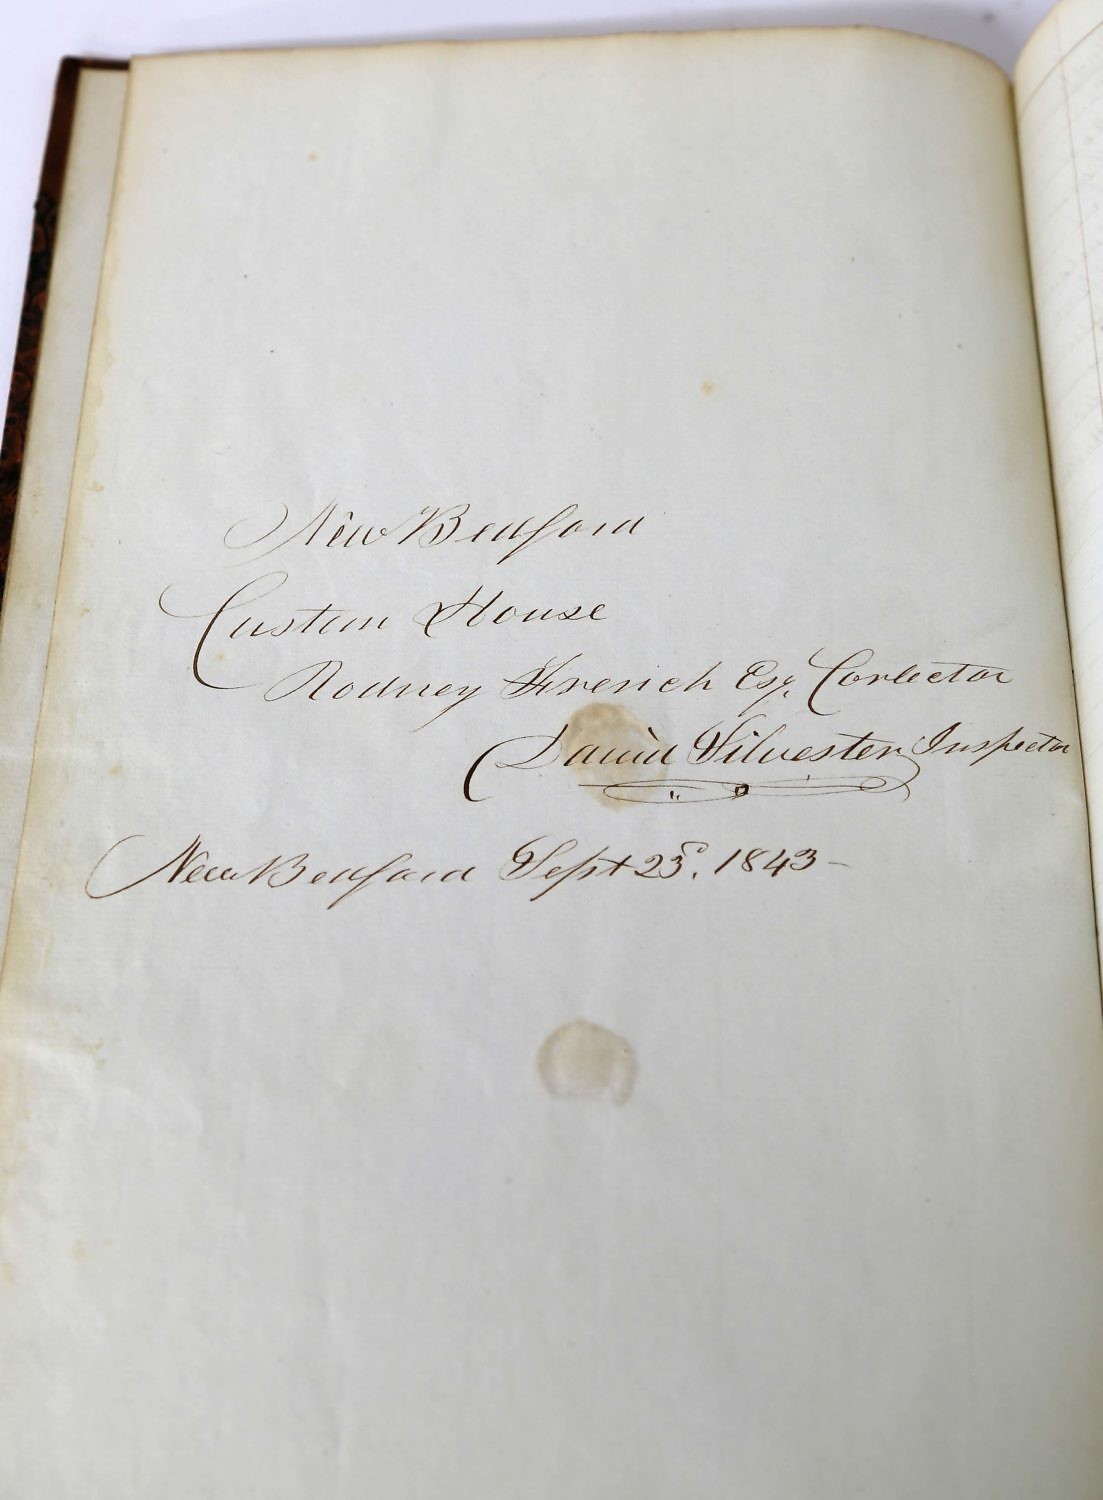 New Bedford
Custom House
Rodney French Esq. Collector
David Silvester Inspector
New Bedford Sept 23d. 1843 -